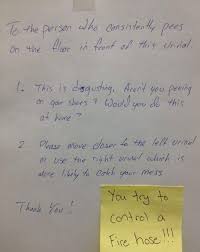 To the person who consistently pees
on the floor in front of this urinal.
1. This is disgusting. Aren't you peeing
on your shoes? Would you do this
at home?
2. Please move closer to the left urinal
or use the right urinal which is
more likely to catch your mess.
Thank You!
You try to
control a
Fire hose!!!